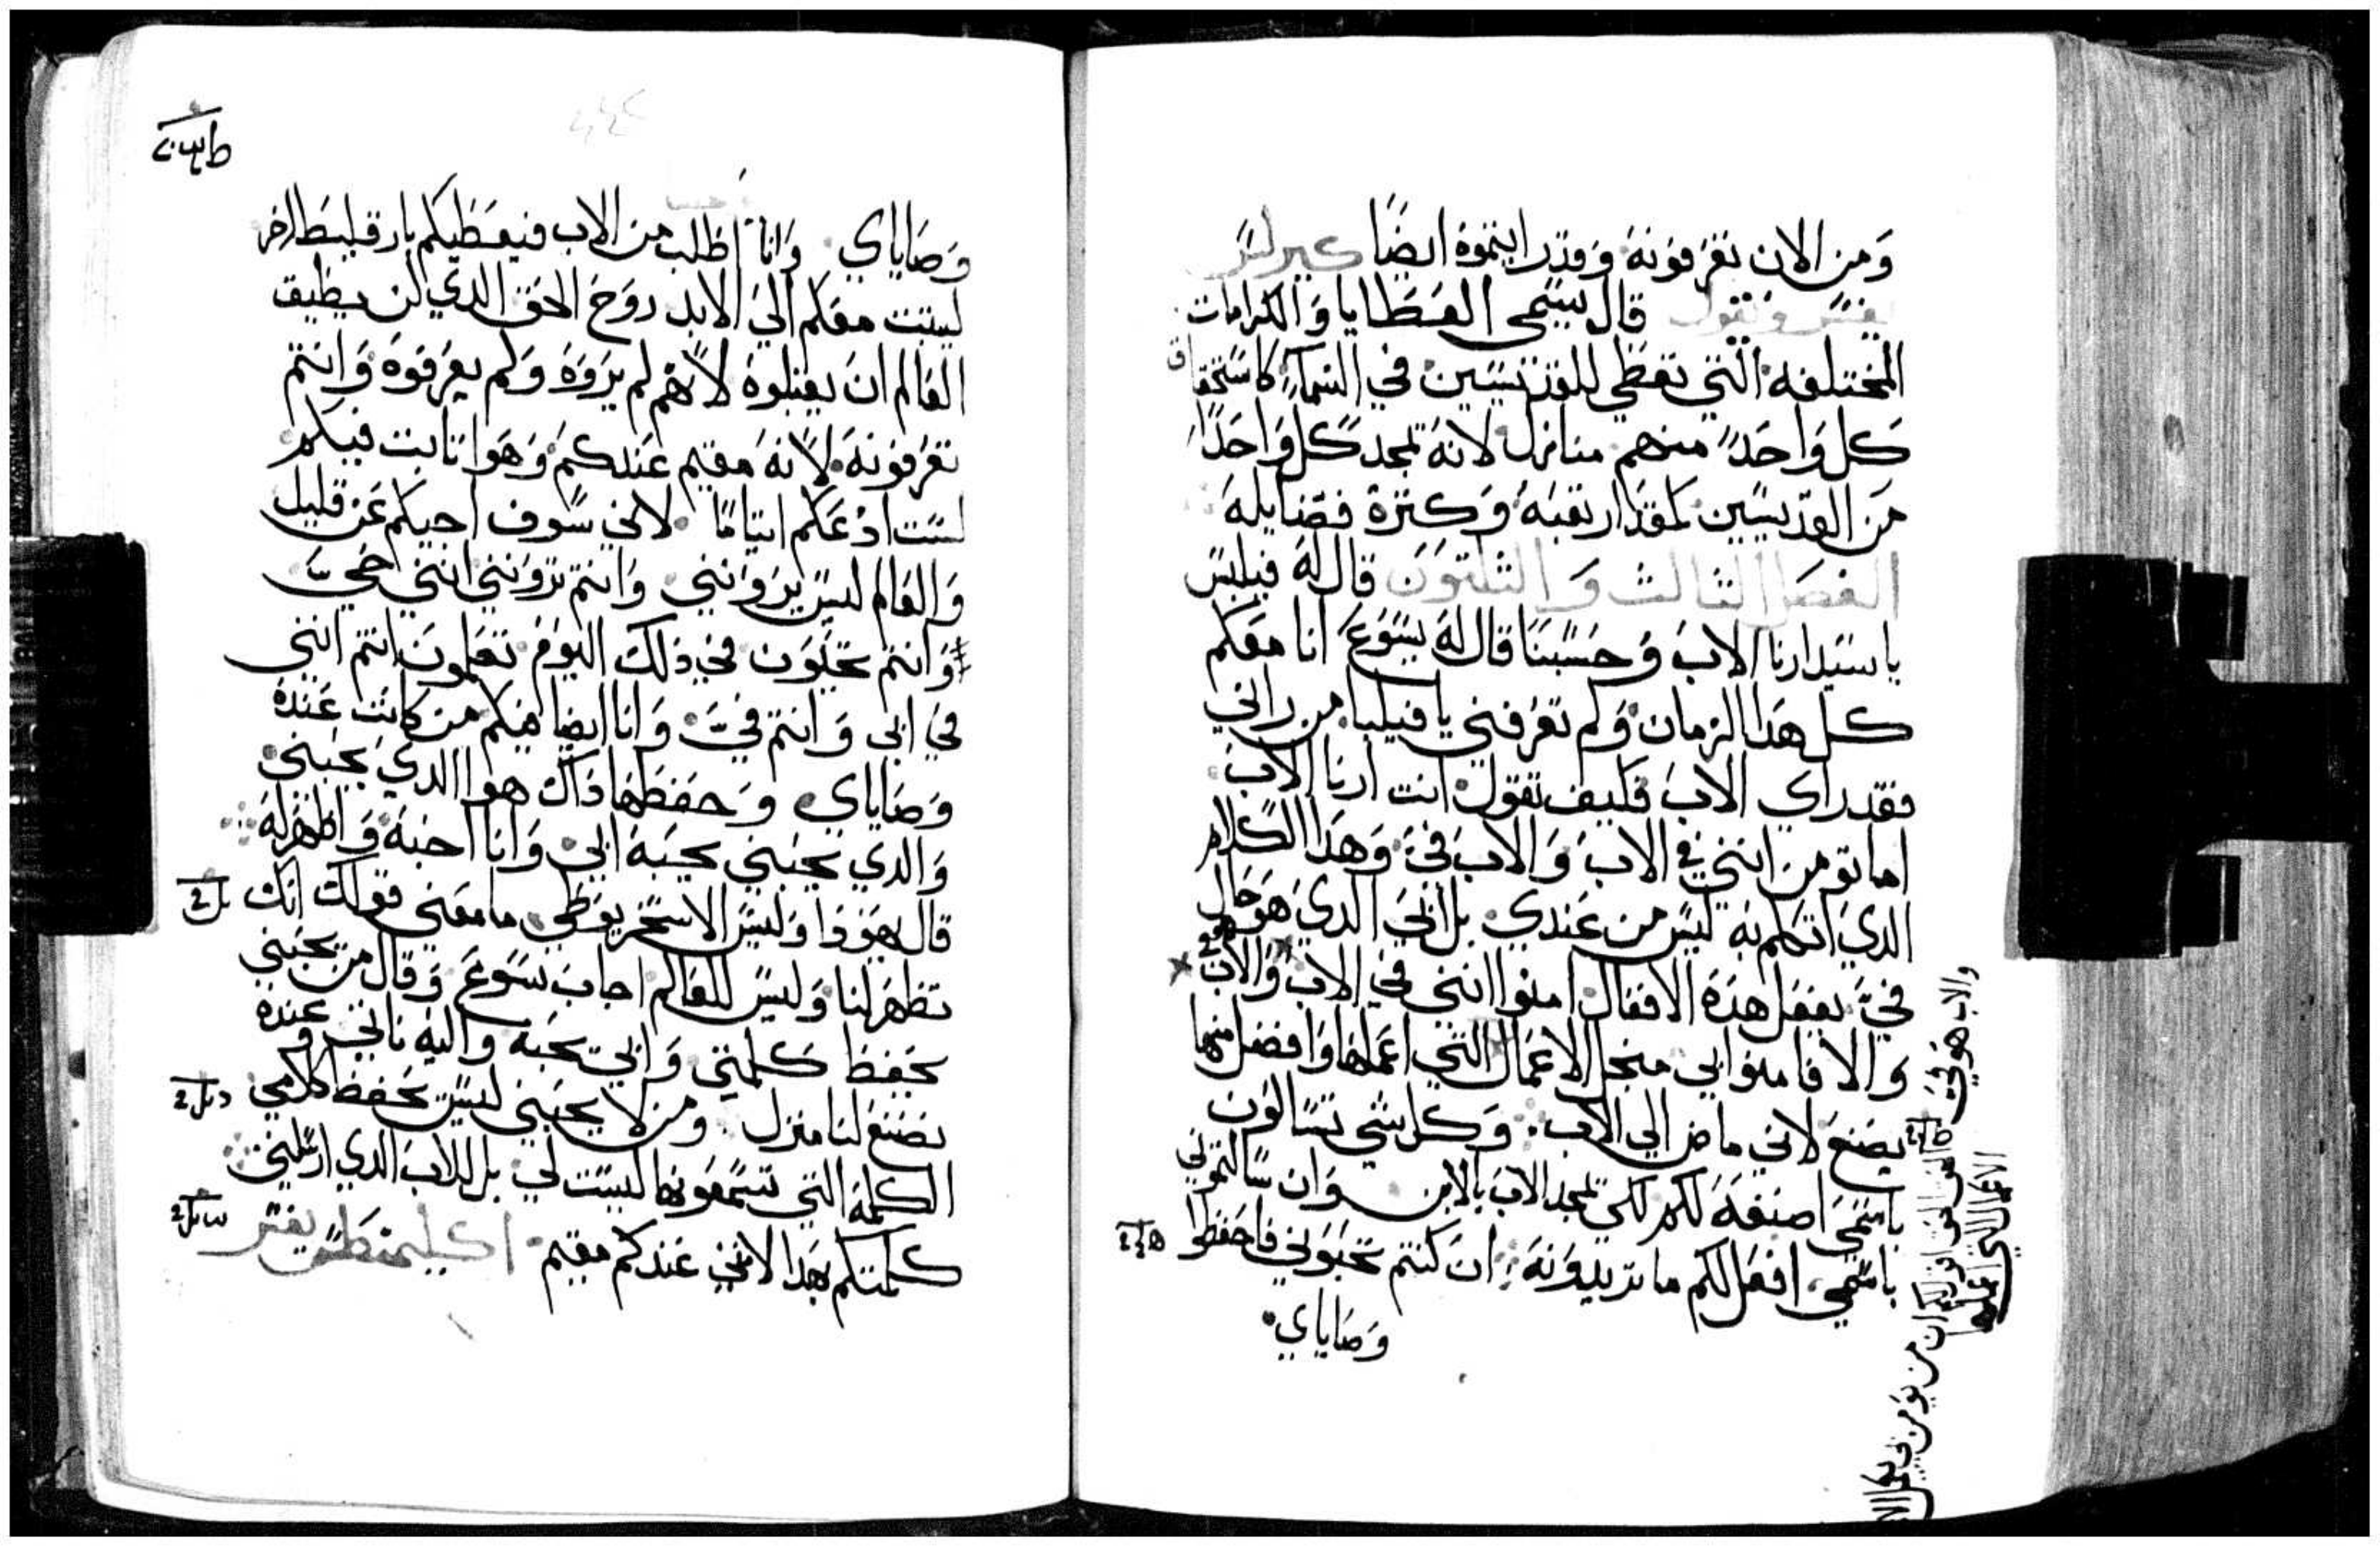 وَمن الان تعَرفوَنهَ وَقدَرايتموَة ايضَا كيرلسَ
يفسَر وَيقول قال يسَمى العَطَايا وَالكرامات
المختلفه التي تعَطي للقديسَين في السَماءَ كاستَحقاق
كَل وَاحَدَ منهم منازل لانهَ تمجدَ كل وَاحَدَا
مَن القدَيسَين بمقدَار تعَبهَ وَكتَرة فضَايلهَ
الفصَل الثالث وَالثلثوَن قال لهَ فيلبسَ
ياسَيد ارنا الابَ وَحَسَبنَا قال لهَ يسَوَعَ انا معَكم
كل هَدا الزمان وَلم تعَرفني يا فيلبا من راني
فقد راي الابَ فكيف تقول انت ارنا الابَ
اما تومن انني في الابَ وَالابَ فيَ وَهَدا الكلام
الدي اتكلم بهَ ليسَ من عَندي بل ابيَ الدي هوَحَال
فيَ يفعَل هَدَة الافعَال امنوا انني في الاب وَالاب
وَالا فامنوا بي منجل الاعَمال التي اعَملها وَافضل منها
يصَنعَ لاني ماض الي الابَ وَكل شي تسَالوَن
باسَمي اصنعَهَ لكم لكي يمجد الابَ بالابن وَان سَالتموَني
باسَمي افعَل لكم ما تريدوَنهَ ان كنتم تحَبَوني فاحَفظوا
وَصَاياي
والاب هَو فيَ
الحق الحق اقول لكم ان من يوَمن بي يعمل الا
الاعَمال التي اعَملها
وَصَاياي وَانا اطلب من الاب فيعَطيكم بارقليطَ اخر
ليثبت معَكم الي الابد روَحَ الحَق الدي لن يطيق
العَالم ان يقبلوهَ لانهَم لم يرَوَهَ وَلم يعَرفوَهَ وَانتم
تعَرفوَنهَ لانهَ مقيم عَندكم وَهَوا ثابت فيكم
لسَت ادعَكم ايتامَا لاني سَوف اجيكم عَن قليل
وَالعَالم ليسَ يرَوَنني وَانتم ترَوَنني انني حَيَ
وَانتم تحَيَوَن في ذلك اليوَم تعَلموَن انتم انني
في ابي وَانتم فيَ وَانا ايضا فيكم من كانت عَندهَ
وَصَاياي وَحَفظهَا ذاك هوا الدي يحَبني
وَالدي يحَبني يحَبهَ ابي وَانا احَبهَ وَاظهَر لهَ
قال يهَوَدا وَليسَ الاسَخريوَطي ما معَني قوَلك انك
تظهَر لنا وَليسَ للعَالم اجابَ يسَوَعَ وَقال من يحَبني
يحَفظ كلمتي وَابي يحَبهَ وَاليهَ ناتي وعندهَ
نصَنعَ لنا منزل وَمن لا يحَبني ليسَ يحَفظ كلامي
الكلمهَ التي تسَمعَوَنها ليسَت لي بل للابَ الدي ارسَلني
كلمتكم بهَدا لانني عَندكم مقيم اكليمنطسَ يفسَر